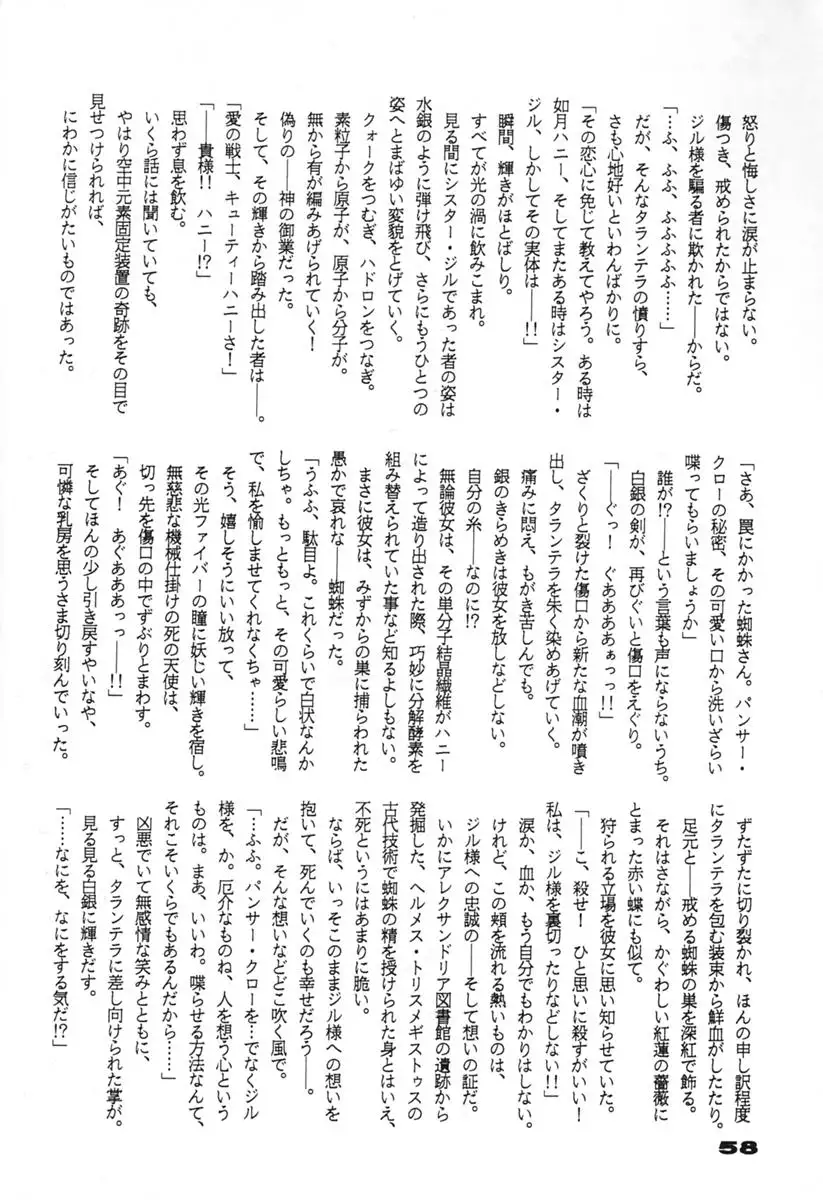 怒りと悔しさに涙が止まらない。
傷つき、戒められたからではない。
ジル様を騙る者に欺かれた――からだ。
「…ふ、ふふ、ふふふふふ……」
だが、そんなタランテラの憤りすら、
さも心地好いといわんばかりに。
「その恋心に免じて教えてやろう。ある時は
如月ハニー、そしてまたある時はシスター・
ジル、しかしてその実体は――!!」
瞬間、輝きがほとばしり。
すべてが光の渦に飲みこまれ。
見る間にシスター・ジルであった者の姿は
水銀のように弾け飛び、さらにもうひとつの
姿へとまばゆい変貌をとげていく。
クォークをつむぎ、ハドロンをつなぎ。
素粒子から原子が、原子から分子が。
無から有が編みあげられていく！
偽りの――神の御業だった。
そして、その輝きから踏み出した者は――。
「愛の戦士、キューティーハニーさ！」
「――貴様!!　ハニー!?」
思わず息を飲む。
いくら話には聞いていても、
やはり空中元素固定装置の奇跡をその目で
見せつけられれば、
にわかに信じがたいものではあった。
「さあ、罠にかかった蜘蛛さん。パンサー・
クローの秘密、その可愛い口から洗いざらい
喋ってもらいましょうか」
誰が!?――という言葉も声にならないうち。
白銀の剣が、再びぐいと傷口をえぐり。
「――ぐっ！　ぐああああぁっっ!!」
ざくりと裂けた傷口から新たな血潮が噴き
出し、タランテラを朱く染めあげていく。
痛みに悶え、もがき苦しんでも。
銀のきらめきは彼女を放しなどしない。
自分の糸――なのに!?
無論彼女は、その単分子結晶繊維がハニー
によって造り出された際、巧妙に分解酵素を
組み替えられていた事など知るよしもない。
まさに彼女は、みずからの巣に捕らわれた
愚かで哀れな――蜘蛛だった。
「うふふ、駄目よ。これくらいで白状なんか
しちゃ。もっともっと、その可愛らしい悲鳴
で、私を愉しませてくれなくちゃ……」
そう、嬉しそうにいい放って、
その光ファイバーの瞳に妖しい輝きを宿し。
無慈悲な機械仕掛けの死の天使は、
切っ先を傷口の中でずぶりとまわす。
「あぐ！　あぐあああっっ――!!」
そしてほんの少し引き戻すやいなや、
可憐な乳房を思うさま切り刻んでいった。
ずたずたに切り裂かれ、ほんの申し訳程度
にタランテラを包む装束から鮮血がしたたり。
足元と――戒める蜘蛛の巣を深紅で飾る。
それはさながら、かぐわしい紅蓮の薔薇に
とまった赤い蝶にも似て。
狩られる立場を彼女に思い知らせていた。
「――こ、殺せ！　ひと思いに殺すがいい！
私は、ジル様を裏切ったりなどしない!!」
涙か、血か、もう自分でもわかりはしない。
けれど、この頬を流れる熱いものは、
ジル様への忠誠の――そして想いの証だ。
いかにアレクサンドリア図書館の遺跡から
発掘した、ヘルメス・トリスメギストゥスの
古代技術で蜘蛛の精を授けられた身とはいえ、
不死というにはあまりに脆い。
ならば、いっそこのままジル様への想いを
抱いて、死んでいくのも幸せだろう――。
だが、そんな想いなどどこ吹く風で。
「…ふふ。パンサー・クローを…でなくジル
様を、か。厄介なものね、人を想う心という
ものは。まあ、いいわ。喋らせる方法なんて、
それこそいくらでもあるんだから……」
凶悪でいて無感情な笑みとともに、
すっと、タランテラに差し向けられた掌が。
見る見る白銀に輝きだす。
「……なにを、なにをする気だ!?」
58